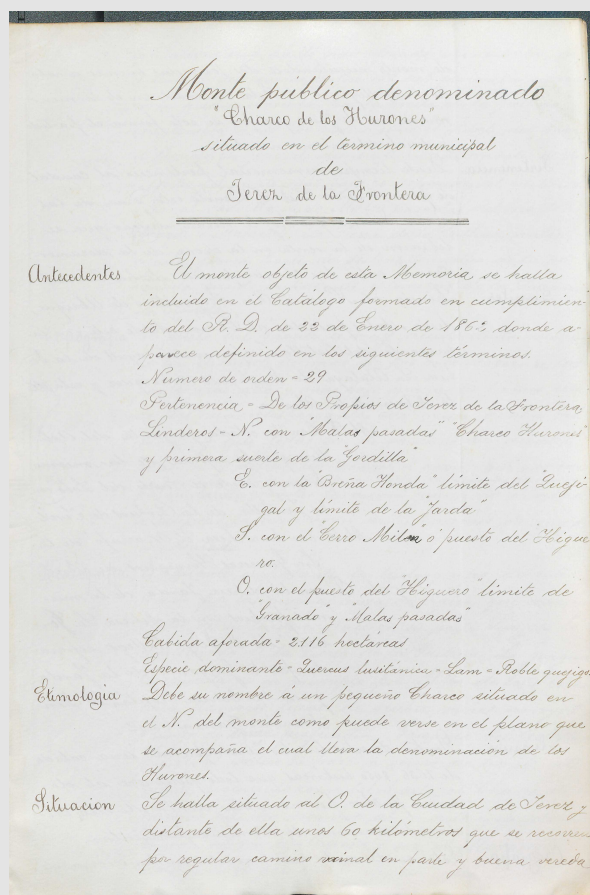 Monte público denominado
"Charco de los Hurones"
situado en el termino municipal
de
Jerez de la Frontera
Antecedentes El monte objeto de esta Memoria se halla
incluido en el Catálogo formado en cumplimien-
to del R. D. de 22 de Enero de 1862 donde a-
parece definido en los siguientes términos.
Numero de orden = 29
Pertenencia = De los Propios de Jerez de la Frontera
Linderos - N. con "Malas pasadas" "Charco Hurones"
y primera suerte de la "Gordilla"
E. con la "Breña Honda" límite del "Queji-
gal y límite de la "Jarda"
S. con el "Cerro Milan" ó puesto del "Higue
ro.
O. con el puesto del "Higuero" límite de
"Granado" y "Malas pasadas"
Cabida aforada = 2.116 hectáreas
Especie dominante = Quercus lusitánica = Lam = Roble quejigo.
Etimologia Debe su nombre á un pequeño Charco situado en
el N. del monte como puede verse en el plano que
se acompaña el cual lleva la denominación de los
Hurones.
Situacion Se halla situado al O. de la Ciudad de Jerez y
distante de ella unos 60 kilómetros que se recorren
por regular camino vecinal en parte y buena vereda